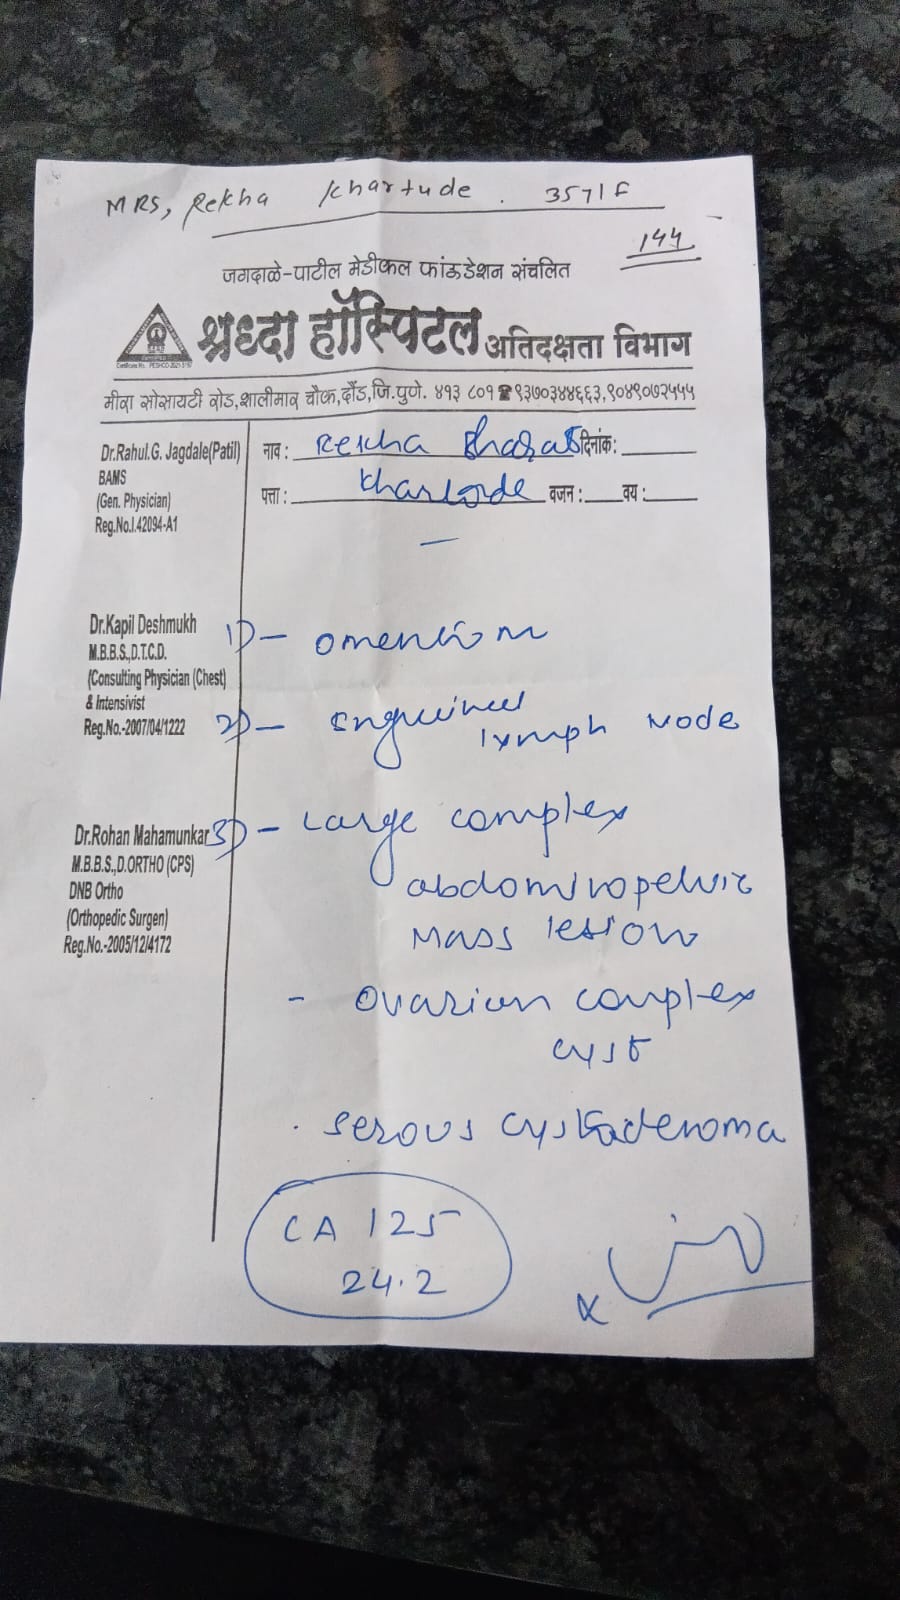 MRS, Rekha Khartude . 3571F
144
जगदाळे-पाटील मेडीकल फांऊडेशन संचलित
श्रध्दा हॉस्पिटल अतिदक्षता विभाग
मीरा सोसायटी रोड,शालीमार चौक,दौंड,जि.पुणे. ४१३ ८०१ ☎९३७०३४४६६३,९०४९०७२५५५
Dr.Rahul.G. Jagdale(Patil)
BAMS
(Gen. Physician)
Reg.No.I.42094-A1
नाव : Rekha Bharat दिनांक:
पत्ता : Khartode वजन : वय :
Dr.Kapil Deshmukh
M.B.B.S.,D.T.C.D.
(Consulting Physician (Chest)
& Intensivist
Reg.No.-2007/04/1222
Dr.Rohan Mahamunkar
M.B.B.S.,D.ORTHO (CPS)
DNB Ortho
(Orthopedic Surgen)
Reg.No.-2005/12/4172
1) - omentum
2) - lymph Node
3) - Large complex
abdominopelvic
Mass lesion
- Ovarian complex
cyst
. serous cystadenoma
CA 125
24.2